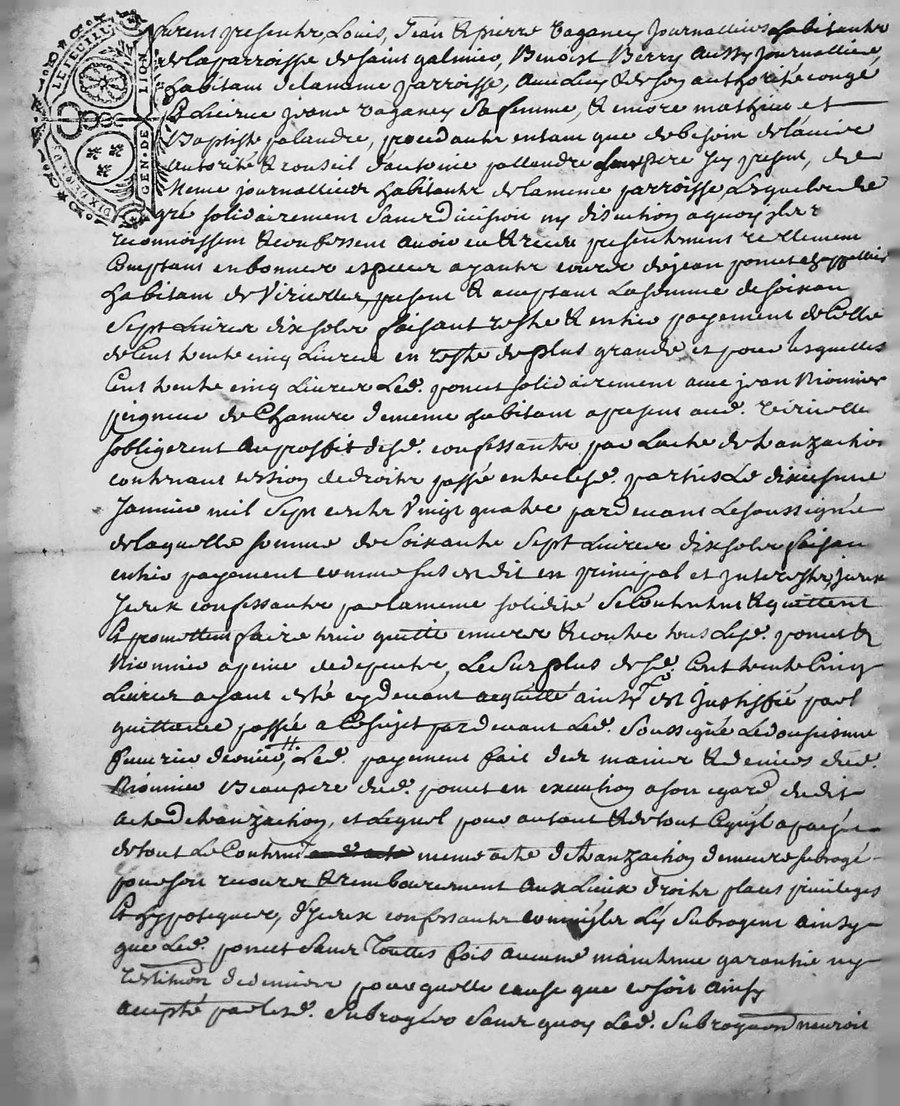 LE FEUILL.
GEN. DE LION
DIX DEN. SIX
furent presents, Louis, Jean & pierre Vaganey Journalliers habitants
de la parroisse de saint galmier, Benoist Berry aussy Journallier,
habitant de la meme parroisse, & de son authorité congé
& Licence jeane Vaganey Sa femme, & encore mathieu et
Baptiste palandre, procedants entant que de besoin de l'avis
autorité & conseil d'antoine pallandre leur pere Icy present, de
meme journalliers habitants de la meme parroisse, Lesquels de
gré solidairement Sans division ny discution a quoy
reconnoissent & confessent avoir eu & receu presentement reellement
comptant en bonnes especes ayants cours de jean poncet
habitant de Viricelles, present & aceptant La somme de soixan
Sept Livres dix sols faisant reste & entier payement de Celle
de Cent trente cinq Livres en reste de plus grande et pour lesquelles
Cent trente cinq Livres Led. poncet solidairement avec jean Rionnier
peigneur de Chanvre de meme habitant a present aud. Viricelle
sobligerent au proffit desd. confessants par Lacte de tranzaction
contenant cession de droits passé entre lesd. parties Le dixiesme
Janvier mil Sept cents Vingt quatre pardevant Le soussigné
de laquelle somme de Soixante Sept Livres dix sols faisan
entier payement comme sus est dit en principal et Interests, Iceux
Iceux confessants par la meme solidité Se Contentent & quittent
Et promettent faire tenir quitte envers & contre tous Lesd. poncet &
Rionnier a peine de depents, Le Surplus desd. Cent trente Cinq
Livres ayant esté cy devant acquitté ainsy est Justiffié par l
quittance passée a Ce sujet pardevant Led. Soussigné Le douziesme
fevrier dernier, Led. payement fait des mains & deniers dud.
Rionnier Beaupere dud. poncet en execution a son egard dudit
acte de tranzaction, et Lequel pour autant & de tout Ce qu'il a payé
de tout Le Contenu meme acte de tranzaction demeure subrogé
pour son recours & remboursement aux Lieux droits places privileges
Et hypoteques, d'Iceux confessants comme Ils Ly Subrogent ainsy
que Led. poncet Sans Touttes fois aucune maintenue garantie ny
restitution de deniers pour quelle cause que ce soit ainsy
accepté par led. Subrogé Sans quoy Led. Subrogeant neuroit